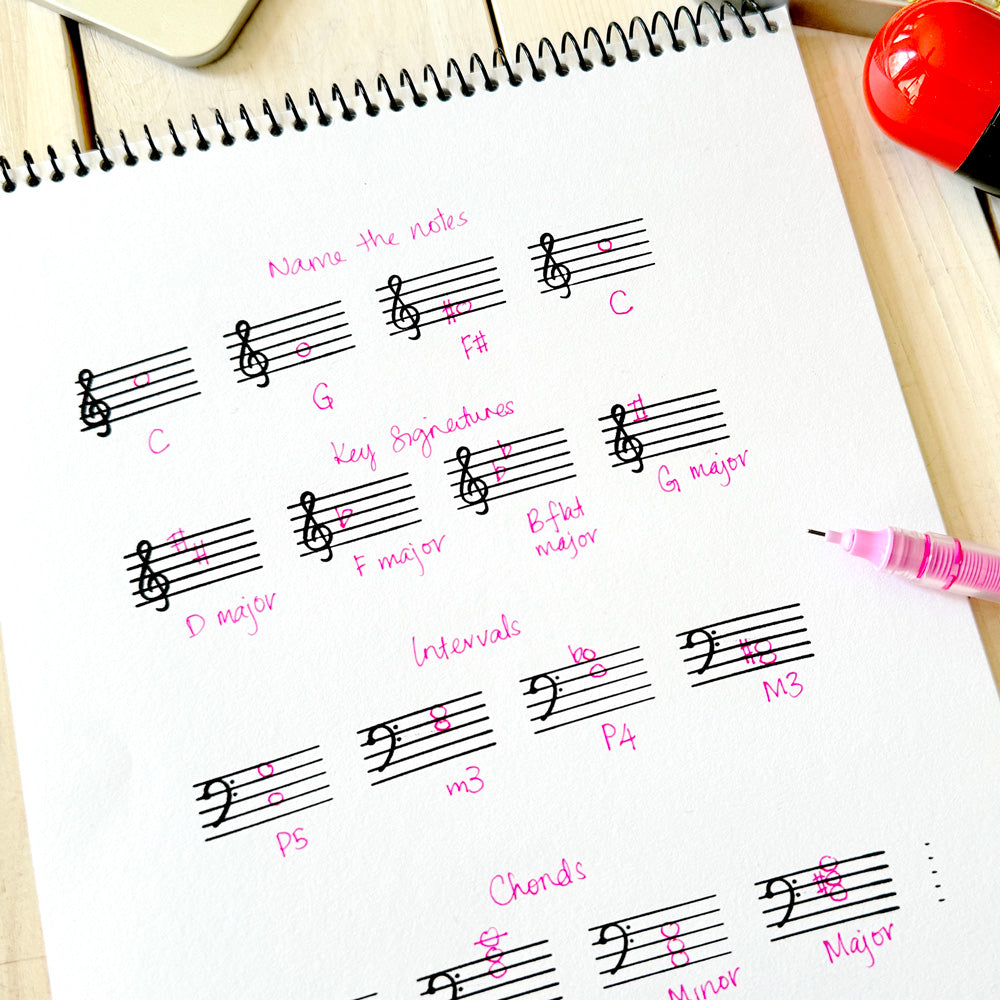 Name the notes
C
G
F#
C
Key Signatures
D major
F major
B flat
major
G major
Intervals
P5
m3
P4
M3
Chords
Minor
Major